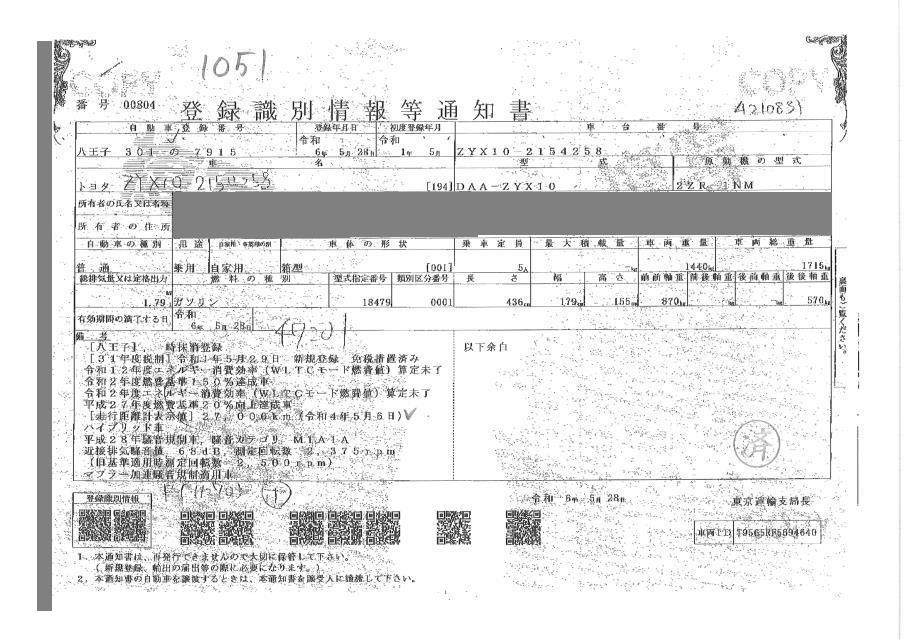 COPY
COPY
1051
番号 00804
登録識別情報等通知書
A210831
自動車登録番号 登録年月日 初度登録年月 車台番号
令和 令和
八王子 301 の 7915 6年 5月 28日 1年 5月 ZYX10-2154258
車名 型式 原動機の型式
トヨタ [194] DAA-ZYX10 2ZR-1NM
所有者の氏名又は名称
所有者の住所
自動車の種別 用途 自家用・事業用の別 車体の形状 乗車定員 最大積載量 車両重量 車両総重量
普通 乗用 自家用 箱型 [001] 5人 kg 1440kg 1715kg
総排気量又は定格出力 燃料の種別 型式指定番号 類別区分番号 長さ 幅 高さ 前前軸重 前後軸重 後前軸重 後後軸重
1.79 ガソリン 18479 0001 436cm 179cm 155cm 870kg 570kg
有効期間の満了する日 令和
6年 5月 28日
備考
[八王子], 一時抹消登録
[31年度税制] 令和1年5月29日 新規登録 免税措置済み
令和12年度エネルギー消費効率(WLTCモード燃費値)算定未了
令和2年度燃費基準150%達成車
令和2年度エネルギー消費効率(WLTCモード燃費値)算定未了
平成27年度燃費基準20%向上達成車
[走行距離計表示値] 27,000km(令和4年5月6日)
ハイブリッド車
平成28年騒音規制車,騒音カテゴリ M1A1A
近接排気騒音値 68dB,測定回転数 2,375rpm
(旧基準適用時測定回転数 2,500rpm)
マフラー加速騒音規制適用車
以下余白
裏面もご覧ください。
済
登録識別情報
令和 6年 5月 28日
東京運輸支局長
車両ID
1.本通知書は、再発行できませんので大切に保管して下さい。
(新規登録、輸出の届出等の際に必要になります。)
2.本通知書の自動車を譲渡するときは、本通知書を譲受人に譲渡して下さい。